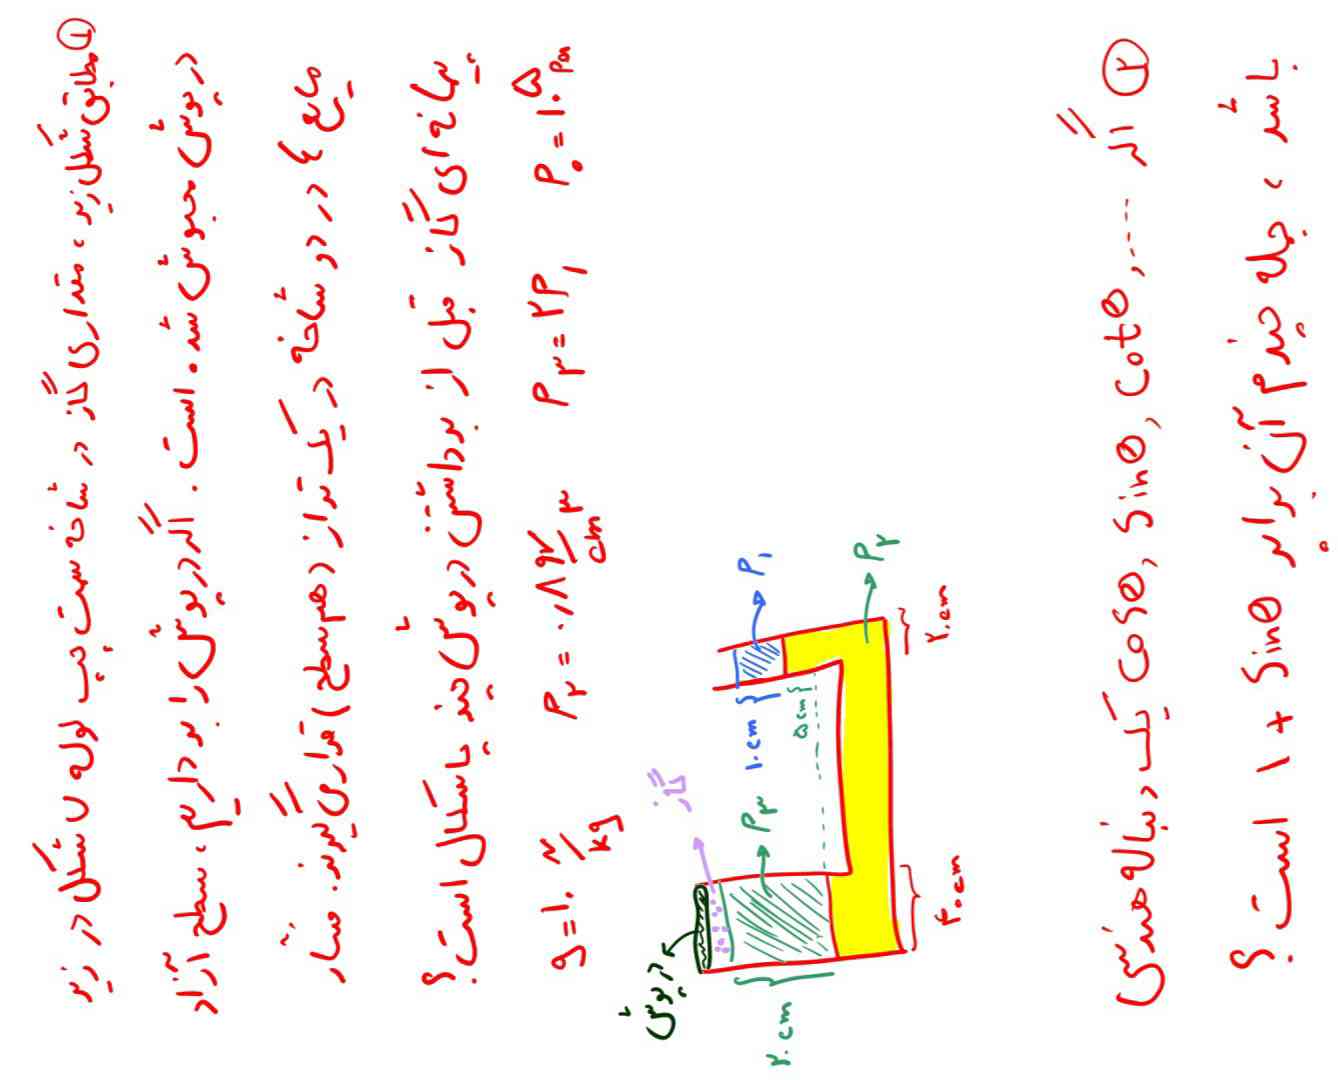 ① مطابق شکل زیر، مقداری گاز در شاخه سمت چپ لوله U شکل در زیر
درپوش محبوس شده است. اگر درپوش را برداریم، سطح آزاد
مایع ها در دو شاخه در یک تراز (هم سطح) قرار می‌گیرند. فشار
پیمانه ای گاز قبل از برداشتن درپوش چند پاسکال است؟
P₀ = ۱۰⁵ Pa ρ₃ = ۲ρ₁ ρ₂ = ۰,۸ gr/cm³ g = ۱۰ N/kg
درپوش
گاز
ρ₃
۲۰cm
۱۰cm
۵cm
ρ₁
ρ₂
۴۰cm
۲۰cm
② اگر ....., Cotθ, Sinθ, Cosθ یک دنباله هندسی
باشد، جمله چندم آن برابر ۱ + Sinθ است؟